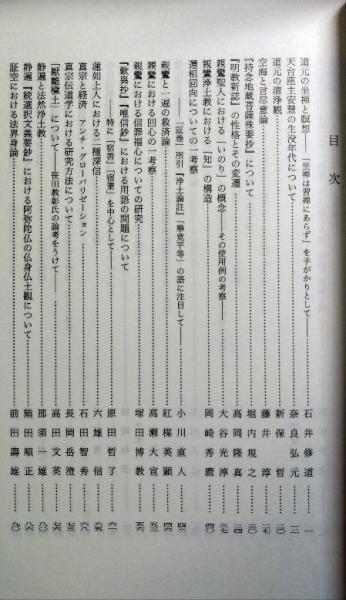 目次
道元の坐禅と瞑想――「坐禅は習禅にあらず」を手がかりとして――……石井修道……一
天台座主安慧の生没年代について……奈良弘元……一三
道元の清浄観……新保哲……二〇
空海と言尽意論……藤井淳……二七
『持念地蔵菩薩殊要抄』について……堀内規之……三〇
『明教新誌』の性格とその変遷……高岡隆真……三四
親鸞聖人における「いのり」の概念――その使用例の考察――……大谷光淳……三七
親鸞浄土教における「知」の構造……岡崎秀麿……四〇
還相回向についての一考察
――『証巻』所引『浄土論註』「畢竟平等」の語に注目して――……小川直人……四三
親鸞と一遍の救済論……紅楳英顕……四六
親鸞における回心の一考察……高瀬大宣……五三
親鸞における信罪福心についての研究……塚田博教……五六
『歎異抄』『唯信鈔』における用語の問題について
――特に「宿善」「宿業」を中心として――……原田哲了……六一
蓮如上人における二種深信……六雄一信……六六
真宗と経済 アンチ・グローバリゼーション……石田智秀……七一
真宗伝道学における研究方法について……長岡岳澄……七六
『厭離穢土』について――笹田教彰氏の論考をうけて――……高田文英……八一
静遍と法然浄土教……那須一雄……八四
静遍『続選択文義要鈔』における阿弥陀仏の仏身仏土観について……熊田順正……九〇
証空における法界身論……前田壽雄……九六